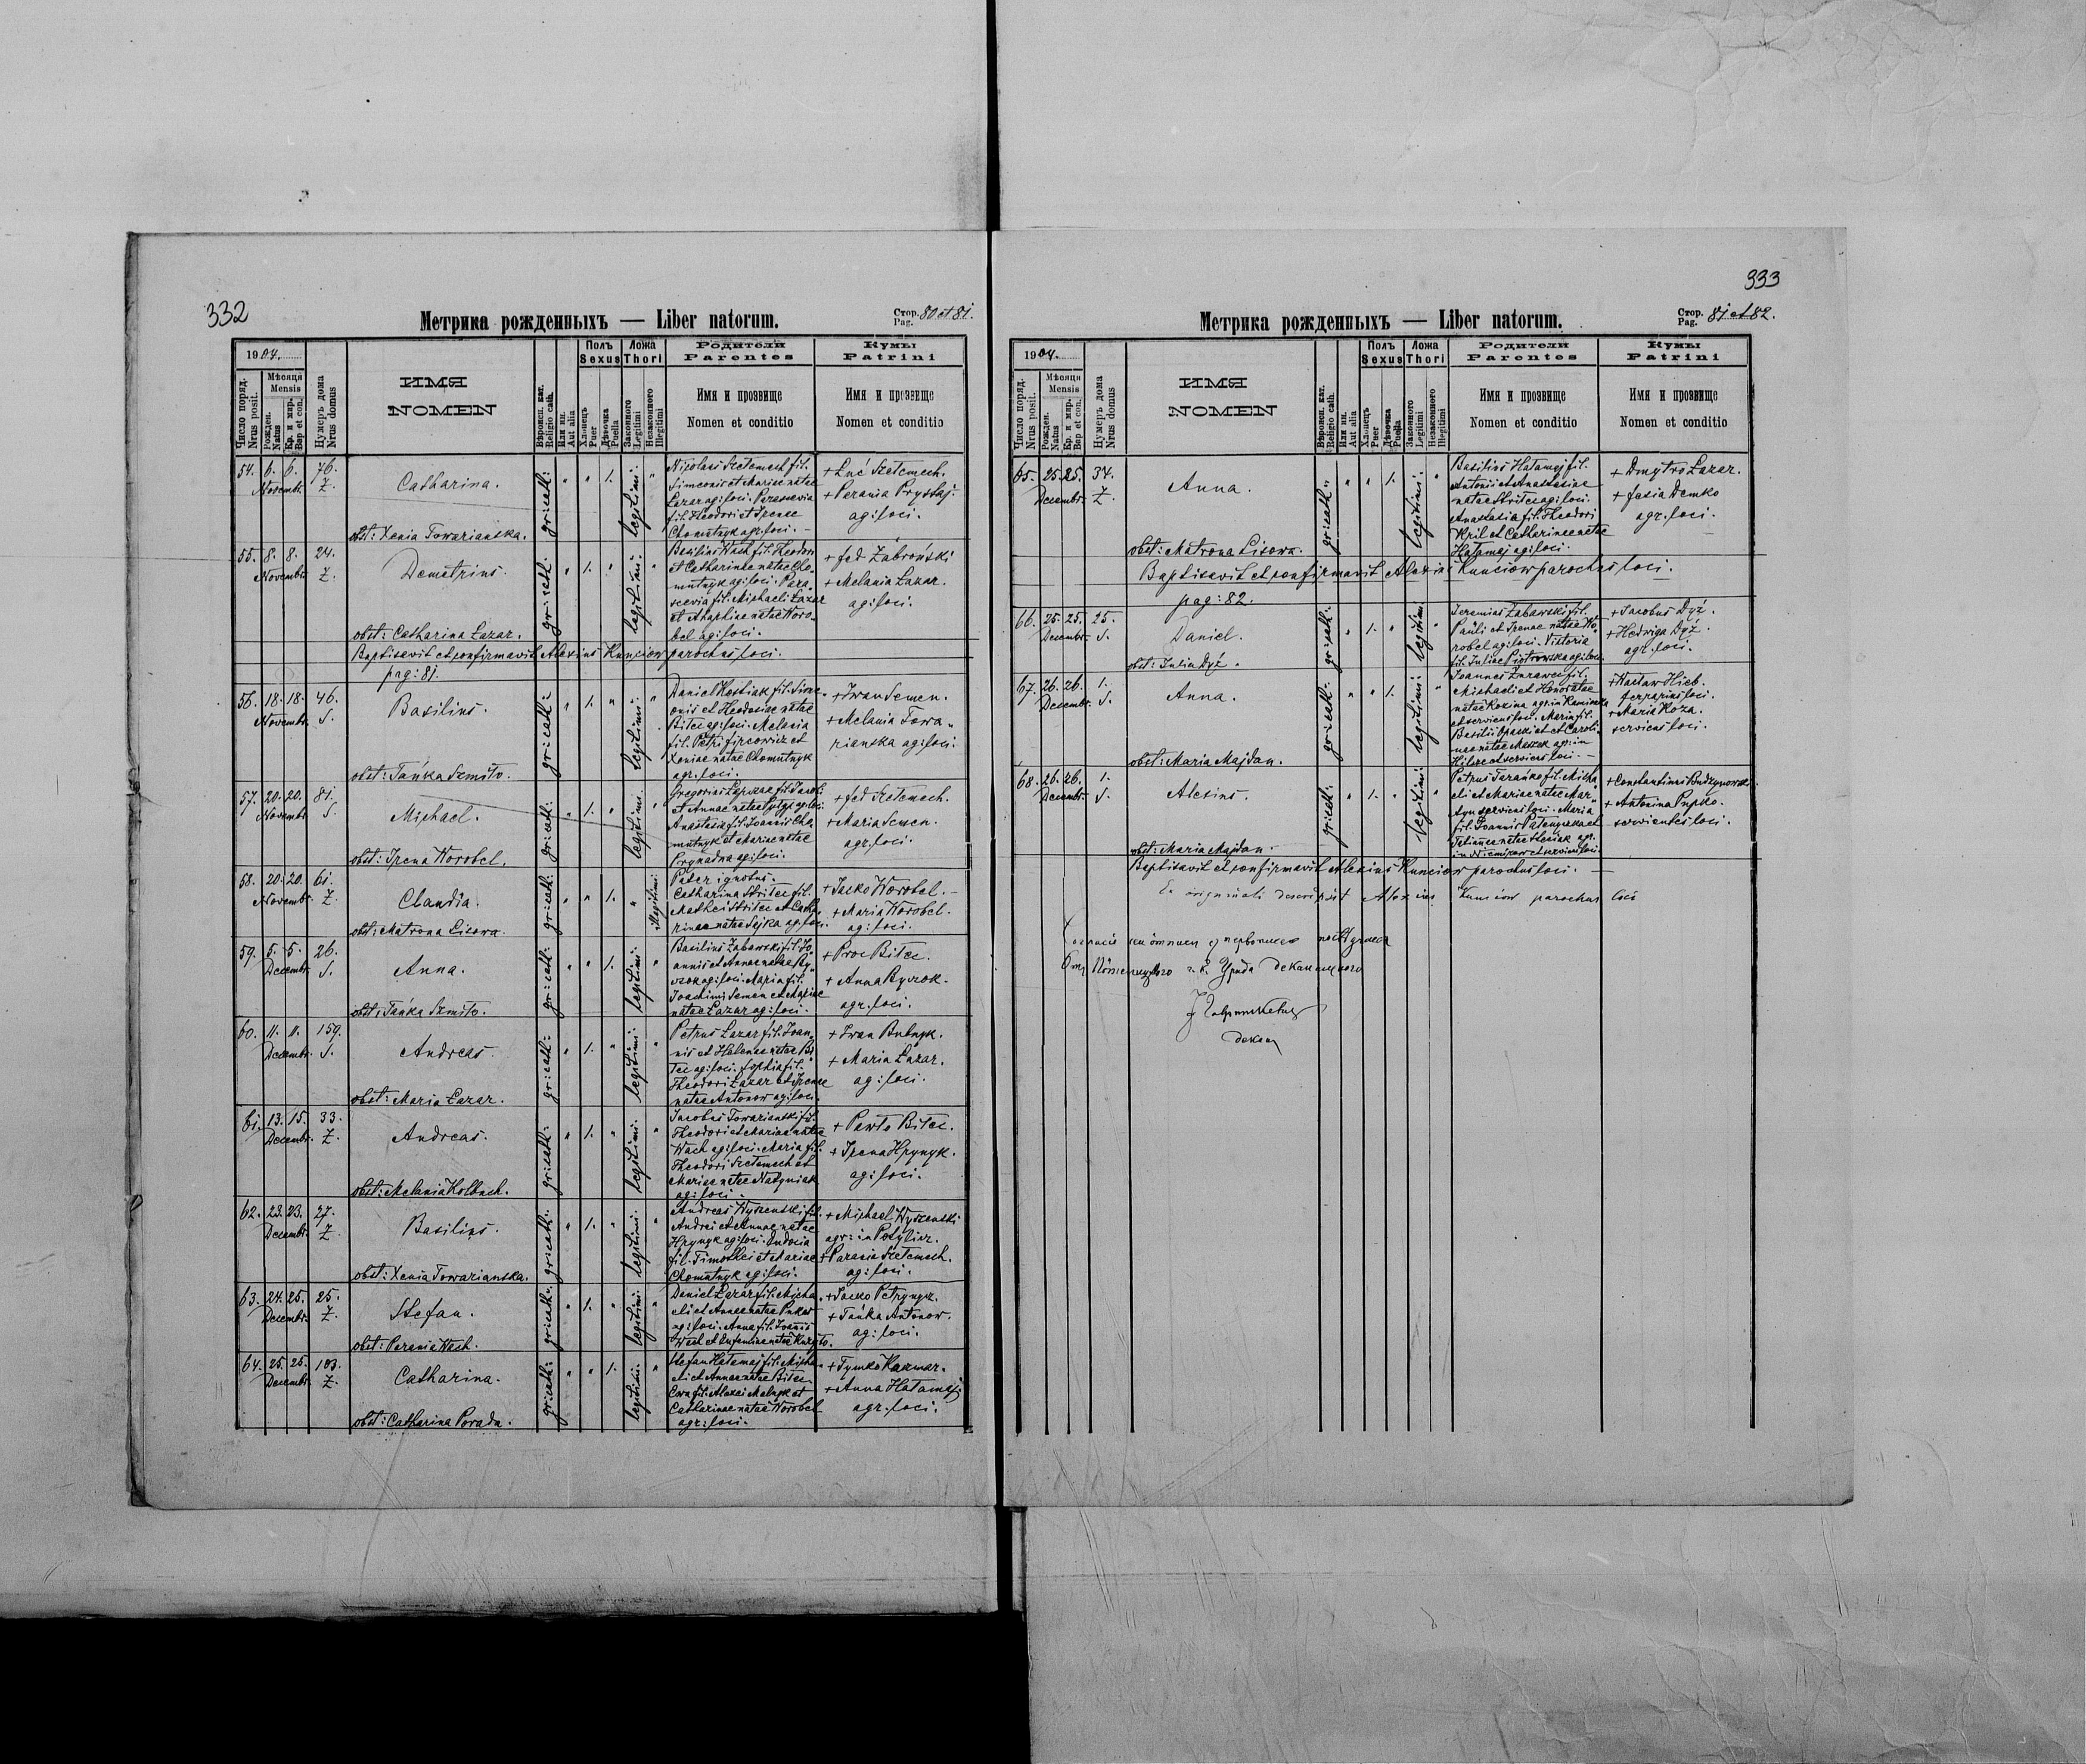 332
Метрика рожденныхъ — Liber natorum.
Стор. Pag. 80 et 81.
1904.
Число поряд. Nrus posit.
Мѣсяця Mensis
Рожден. Natus
Кр. и мир. Bap et con.
Нумеръ дома Nrus domus
ИМЯ
NOMEN
Вѣроисп. кат. Religio cath.
Или ин. Aut alia
Полъ Sexus
Хлопецъ Puer
Дѣвочка Puella
Ложа Thori
Законного Legitimi
Незаконного Illegitimi
Родители
Parentes
Имя и прозвище
Nomen et conditio
Кумы
Patrini
Имя и прозвище
Nomen et conditio
54. 6. 6. 76.
Novembr. Z.
Catharina.
obst: Xenia Towarianska.
gr: cath: " " 1. legitimi: "
Nicolaus Szełemech fil.
Simeonis et Mariae natae
Lazar ag: loci. Parascevia
fil. Theodori et Irenae
Chomutnyk agr. loci. -
+ Luć Szełemech.
+ Parania Prystaj.
ag: loci.
55. 8. 8. 24.
Novembr. Z.
Demetrius.
obst: Catharina Łazar.
gr: cath: " 1. " legitimi: "
Basilius Wach fil. Theodori
et Catharinae natae Cho-
mutnyk ag: loci. Para-
scevia fil. Michaeli Łazar
et Anaphiae natae Woro-
bel ag: loci.
+ Fed Zabroński
+ Melania Łazar.
ag: loci.
Baptisavit et confirmavit Alexius Kunciow parochus loci.
pag: 81.
56. 18. 18. 46.
Novembr. S.
Basilius.
obst: Tańka Szmiło.
gr: cath: " 1. " legitimi: "
Daniel Kostiak fil. Sime-
onis et Theodosiae natae
Bitec ag: loci. Melania
fil. Petri
Xeniae natae Chomutnyk
agr. loci.
+ Iwan Semen.
+ Melania Towa-
rianska ag: loci.
57. 20. 20. 81.
Novembr. S.
Michael.
obst: Irena Worobel.
gr: cath: " 1. " legitimi: "
Gregorius
et Annae natae
Anastasia fil. Joannis Cho-
mutnyk et Mariae natae
Prynadna ag: loci.
+ Fed Szełemech.
+ Maria Semen.
agr. loci.
58. 20. 20. 61.
Novembr. Z.
Claudia.
obst: Matrona Lisowa.
gr: cath: " " 1. " illegitimi:
Pater ignotus.
Catharina Stritec fil.
Mathei Stritec et Catha-
rinae natae Sejka ag: loci.
+ Jacko Worobel. -
+ Maria Worobel.
ag: loci.
59. 5. 5. 26.
Decembr. S.
Anna.
obst: Tańka Szmiło.
gr: cath: " " 1. legitimi: "
Basilius Zabawski fil. Jo-
annis et Annae natae Ry-
czok ag: loci. Maria fil.
Joachimi Semen et Mariae
natae Łazar ag: loci.
+ Proc Bitec.
+ Anna Ryczok.
agr. loci.
60. 11. 11. 159.
Decembr. S.
Andreas.
obst: Maria Łazar.
gr: cath: " 1. " legitimi: "
Petrus Łazar fil. Joan-
nis et Helenae natae Bi-
tec ag: loci. Sophia fil.
Theodori Łazar et Irenae
natae Antonow ag: loci.
+ Iwan Bulnyk.
+ Maria Łazar.
ag: loci.
61. 13. 15. 33.
Decembr. Z.
Andreas.
obst: Melania Kolbuch.
gr: cath: " 1. " legitimi: "
Jacobus Towarianski fil.
Theodori et Mariae natae
Wach ag: loci. Maria fil.
Theodori Szełemech et
Mariae natae
ag: loci.
+ Pawło Bitec.
+ Irena Hrynyk.
ag: loci.
62. 23. 23. 27.
Decembr. Z.
Basilius.
obst: Xenia Towarianska.
gr: cath: " 1. " legitimi: "
Andreas Wyszenski fil.
Andrei et Annae natae
Hrynyk ag: loci. Eudocia
fil. Timothei et Mariae
Chomutnyk ag: loci.
+ Michael Wyszenski
agr: in Potylicz.
+ Parania Szełemech.
ag: loci.
63. 24. 25. 25.
Decembr. Z.
Stefan.
obst: Parania Wach.
gr: cath: " 1. " legitimi: "
Daniel Łazar fil. Micha-
eli et Annae natae
ag: loci. Anna fil. Joannis
Wach et Eufeminae natae
+ Jacko Petrynycz.
+ Tańka Antonow.
ag: loci.
64. 25. 25. 103.
Decembr. Z.
Catharina.
obst: Catharina Porada.
gr: cath: " " 1. legitimi: "
Stefan Hałamaj fil. Micha-
eli et Annae natae Bitec.
Ewa fil. Alexei Melnyk et
Catharinae natae Worobel
agr: loci.
+ Tymko Kaczmar.
+ Anna Hałamaj
agr. loci.
333
Метрика рожденныхъ — Liber natorum.
Стор. Pag. 81 et 82.
1904.
Число поряд. Nrus posit.
Мѣсяця Mensis
Рожден. Natus
Кр. и мир. Bap et con.
Нумеръ дома Nrus domus
ИМЯ
NOMEN
Вѣроисп. кат. Religio cath.
Или ин. Aut alia
Полъ Sexus
Хлопецъ Puer
Дѣвочка Puella
Ложа Thori
Законного Legitimi
Незаконного Illegitimi
Родители
Parentes
Имя и прозвище
Nomen et conditio
Кумы
Patrini
Имя и прозвище
Nomen et conditio
65. 25. 25. 34.
Decembr. Z.
Anna.
obst: Matrona Lisowa.
gr: cath: " " 1. legitimi: "
Basilius Hałamaj fil.
Antonii et Anastasiae
natae Stritec ag: loci.
Anastasia fil. Theodori
Kril et Catharinae natae
Hałamaj ag: loci.
+ Dmytro Łazar.
+ Jasia Demko
agr. loci.
Baptisavit et confirmavit Alexius Kunciow parochus loci.
pag: 82.
66. 25. 25. 25.
Decembr. S.
Daniel.
obst: Julia Dyź.
gr: cath: " 1. " legitimi: "
Jeremias Zabawski fil.
Pauli et Irenae natae Wo-
robel ag: loci. Viktoria
fil. Juliae Piotrowska ag: loci.
+ Jacobus Dyź.
+ Hedwiga Dyź.
agr. loci.
67. 26. 26. 1.
Decembr. S.
Anna.
obst: Maria Majdan.
gr: cath: " " 1. legitimi: "
Joannes Żurawel fil.
Michaeli et Honoratae
natae Kozina agr. in
et serviens loci. Maria fil.
Basilii et Caroli-
nae natae Maszek agr: in
et serviens loci. -
+ Wacław Hieb.
ferrarius loci.
+ Maria Koza.
serviens loci.
68. 26. 26. 1.
Decembr. S.
Alexius.
obst: Maria Majdan.
gr: cath: " 1. " legitimi: "
Petrus Tarańko fil. Micha-
eli et Mariae natae Mar-
tyn serviens loci. Maria
fil. Joannis et
Tatianae natae agr.
in Niemirow et serviens loci.
+ Constantinus Budzynowski
+ Antonina Pupko.
servientes loci.
Baptisavit et confirmavit Alexius Kunciow parochus loci. —
Ex originali descripsit Alexius Kunciow parochus loci
декан